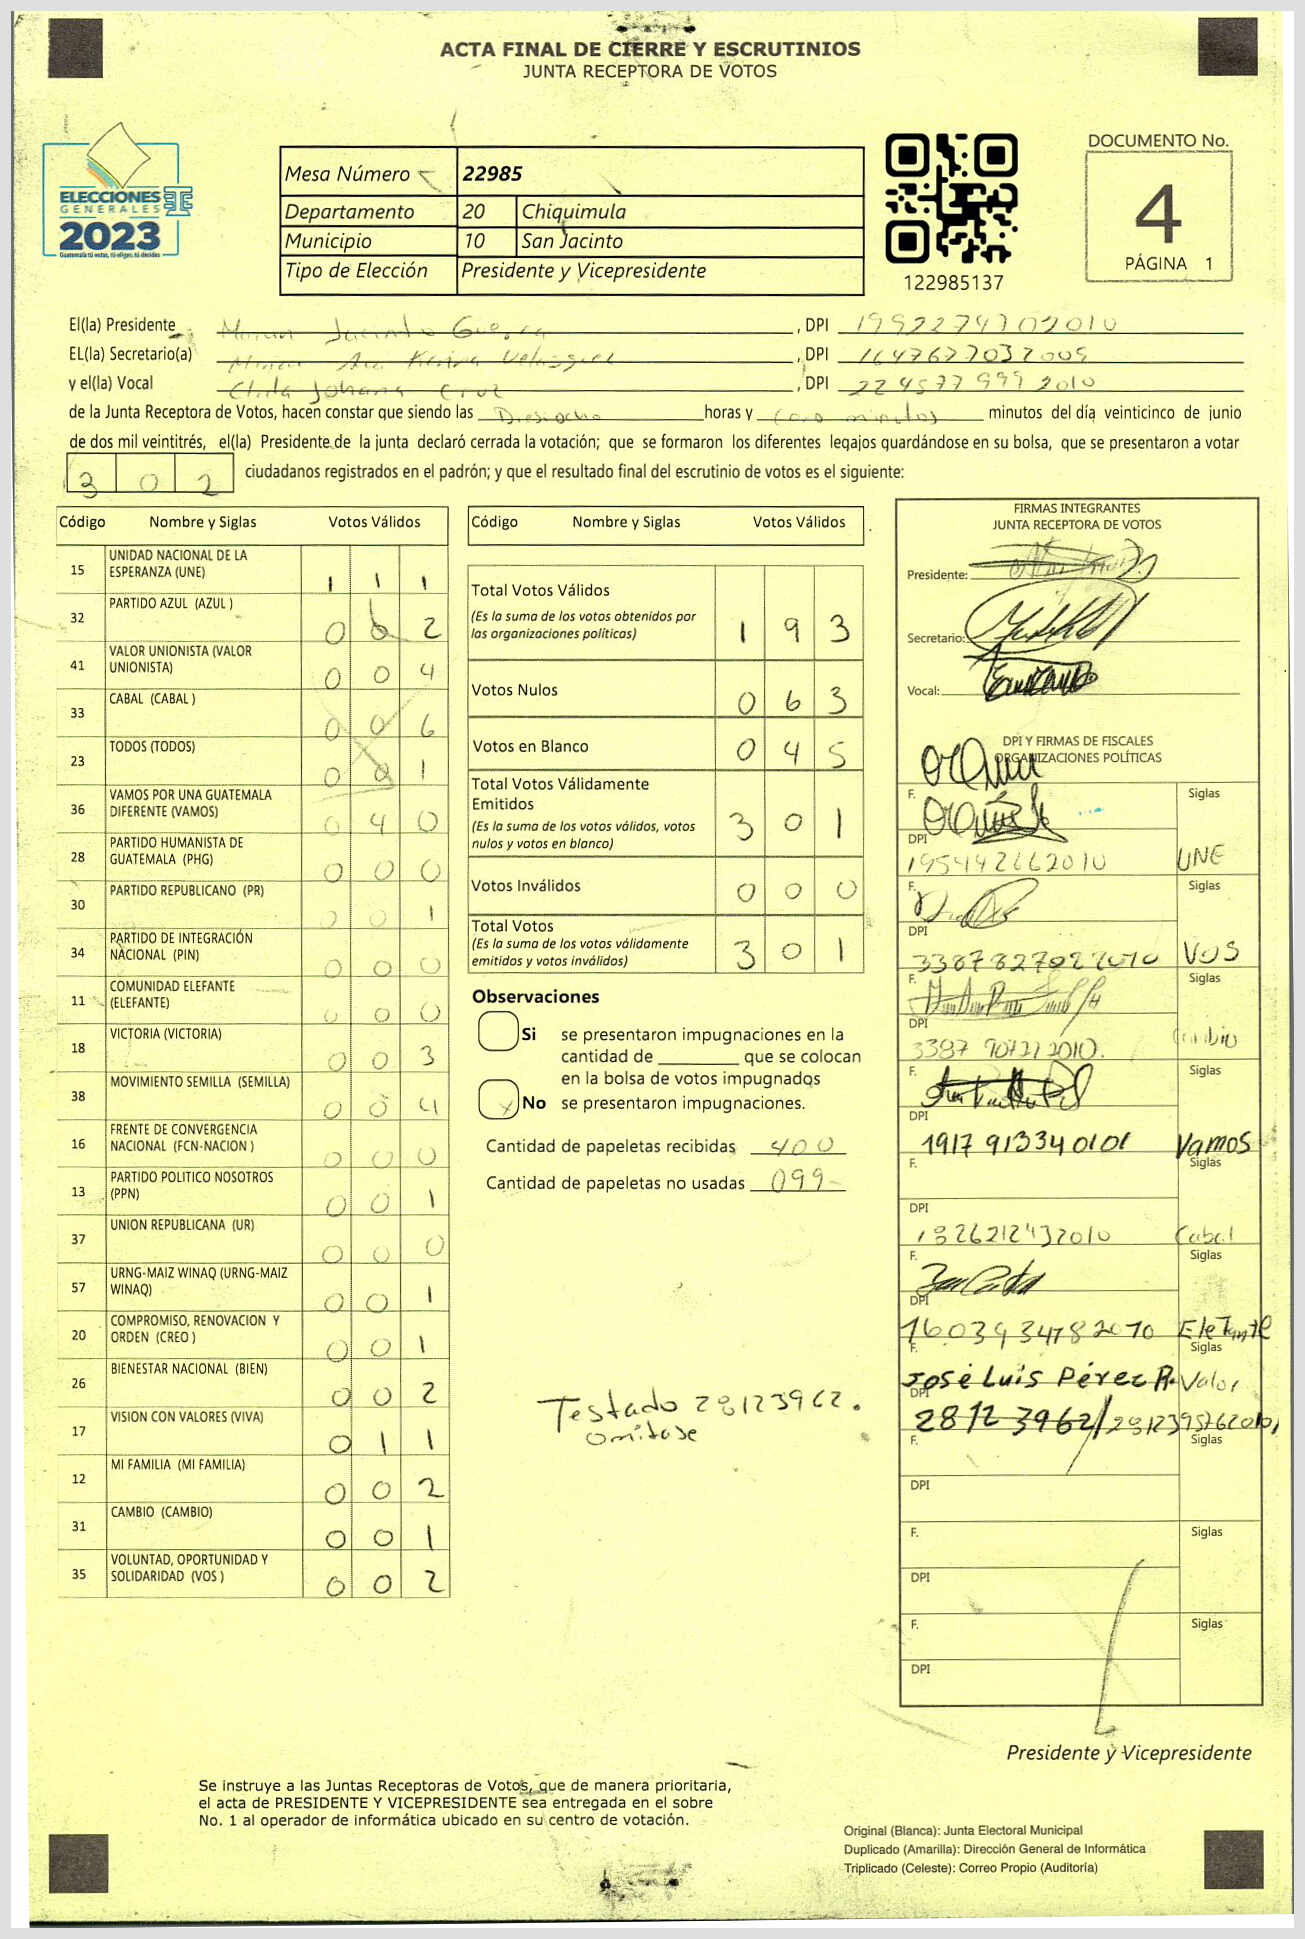 ACTA FINAL DE CIERRE Y ESCRUTINIOS
JUNTA RECEPTORA DE VOTOS
ELECCIONES
GENERALES
2023
Guatemala tú estás, tú eliges, tú decides
Mesa Número 22985
Departamento 20 Chiquimula
Municipio 10 San Jacinto
Tipo de Elección Presidente y Vicepresidente
122985137
DOCUMENTO No.
4
PÁGINA 1
El(la) Presidente Jacinto Guerra, DPI
EL(la) Secretario(a) Karina Velasquez, DPI
y el(la) Vocal Johana Cruz, DPI
de la Junta Receptora de Votos, hacen constar que siendo las Diesiocho horas y cero minutos minutos del día veinticinco de junio
de dos mil veintitrés, el(la) Presidente de la junta declaró cerrada la votación; que se formaron los diferentes legajos guardándose en su bolsa, que se presentaron a votar
302 ciudadanos registrados en el padrón; y que el resultado final del escrutinio de votos es el siguiente:
Código Nombre y Siglas Votos Válidos
15 UNIDAD NACIONAL DE LA ESPERANZA (UNE) 1 1 1
32 PARTIDO AZUL (AZUL) 0 0 2
41 VALOR UNIONISTA (VALOR UNIONISTA) 0 0 4
33 CABAL (CABAL) 0 0 6
23 TODOS (TODOS) 0 0 1
36 VAMOS POR UNA GUATEMALA DIFERENTE (VAMOS) 0 4 0
28 PARTIDO HUMANISTA DE GUATEMALA (PHG) 0 0 0
30 PARTIDO REPUBLICANO (PR) 0 0 1
34 PARTIDO DE INTEGRACIÓN NACIONAL (PIN) 0 0 0
11 COMUNIDAD ELEFANTE (ELEFANTE) 0 0 0
18 VICTORIA (VICTORIA) 0 0 3
38 MOVIMIENTO SEMILLA (SEMILLA) 0 0 4
16 FRENTE DE CONVERGENCIA NACIONAL (FCN-NACION) 0 0 0
13 PARTIDO POLITICO NOSOTROS (PPN) 0 0 1
37 UNION REPUBLICANA (UR) 0 0 0
57 URNG-MAIZ WINAQ (URNG-MAIZ WINAQ) 0 0 1
20 COMPROMISO, RENOVACION Y ORDEN (CREO) 0 0 1
26 BIENESTAR NACIONAL (BIEN) 0 0 2
17 VISION CON VALORES (VIVA) 0 1 1
12 MI FAMILIA (MI FAMILIA) 0 0 2
31 CAMBIO (CAMBIO) 0 0 1
35 VOLUNTAD, OPORTUNIDAD Y SOLIDARIDAD (VOS) 0 0 2
Código Nombre y Siglas Votos Válidos
Total Votos Válidos
(Es la suma de los votos obtenidos por
las organizaciones políticas) 1 9 3
Votos Nulos 0 6 3
Votos en Blanco 0 4 5
Total Votos Válidamente
Emitidos
(Es la suma de los votos válidos, votos
nulos y votos en blanco) 3 0 1
Votos Inválidos 0 0 0
Total Votos
(Es la suma de los votos válidamente
emitidos y votos inválidos) 3 0 1
Observaciones
Si se presentaron impugnaciones en la
cantidad de ________ que se colocan
en la bolsa de votos impugnados
No se presentaron impugnaciones.
Cantidad de papeletas recibidas 400
Cantidad de papeletas no usadas 099
Testado 28123962.
omitase
FIRMAS INTEGRANTES
JUNTA RECEPTORA DE VOTOS
Presidente:
Secretario:
Vocal:
DPI Y FIRMAS DE FISCALES
ORGANIZACIONES POLÍTICAS
F. Siglas
DPI
UNE
F. Siglas
DPI
VOS
F. Siglas
DPI
Cambio
F. Siglas
DPI
1917 91334 0101 Vamos
F. Siglas
DPI
1826212432010 Cabal
F. Siglas
DPI
1603934782010 Elefante
F. Siglas
José Luis Pérez R. Valor
DPI
28123962/
F. Siglas
DPI
F. Siglas
DPI
F. Siglas
DPI
Presidente y Vicepresidente
Se instruye a las Juntas Receptoras de Votos, que de manera prioritaria,
el acta de PRESIDENTE Y VICEPRESIDENTE sea entregada en el sobre
No. 1 al operador de informática ubicado en su centro de votación.
Original (Blanca): Junta Electoral Municipal
Duplicado (Amarilla): Dirección General de Informática
Triplicado (Celeste): Correo Propio (Auditoría)